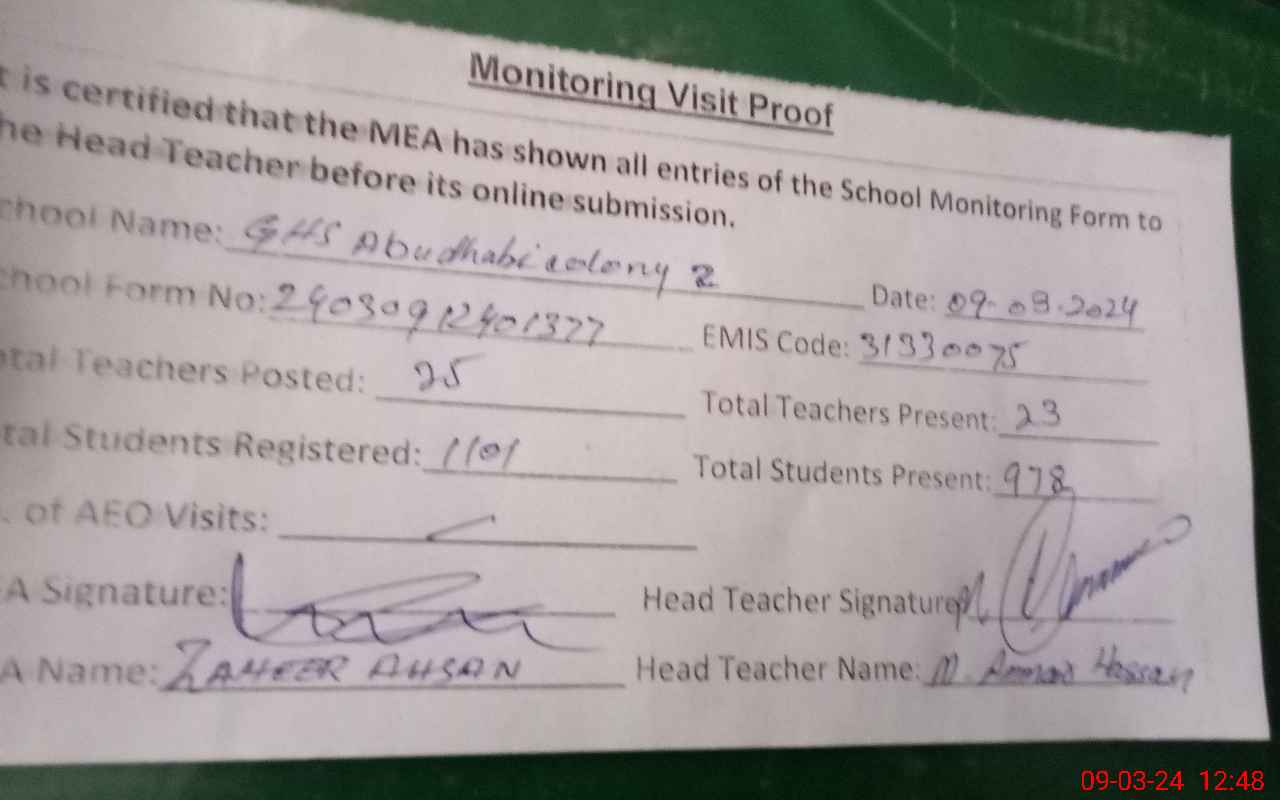 Monitoring Visit Proof
t is certified that the MEA has shown all entries of the School Monitoring Form to
he Head Teacher before its online submission.
chool Name: GHS Abudhabi colony 2 Date: 09-03-2024
chool Form No: 24030912401377 EMIS Code: 31330075
otal Teachers Posted: 25 Total Teachers Present: 23
tal Students Registered: 1101 Total Students Present: 978
. of AEO Visits:
A Signature: Head Teacher Signature
A Name: ZAHEER AHSAN Head Teacher Name: M. Hassan
09-03-24 12:48